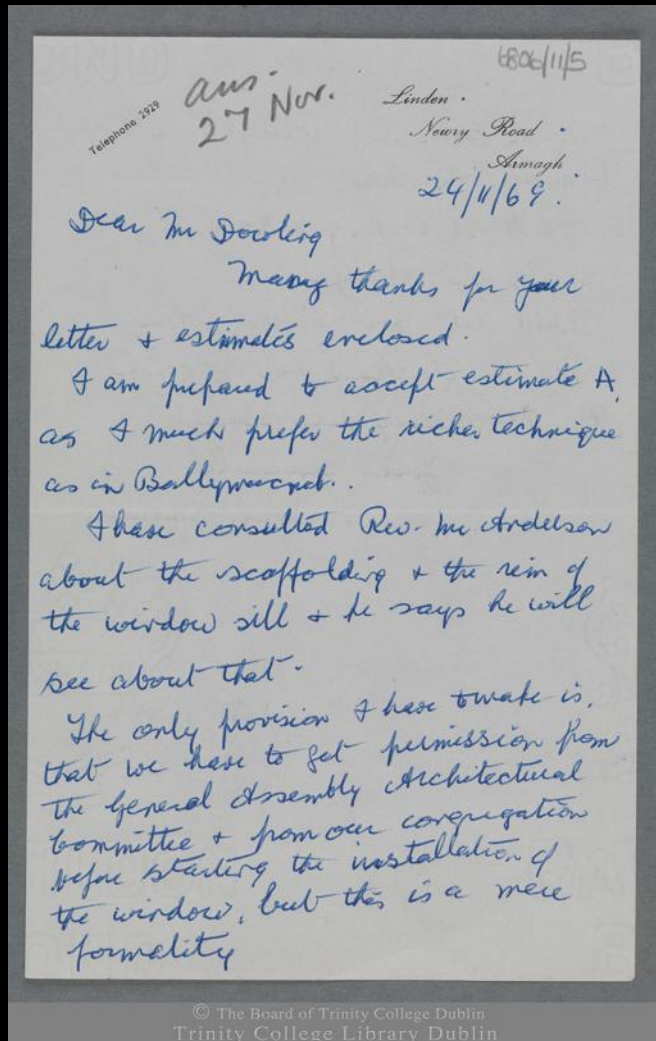 6806/11/5
ans.
27 Nov.
Telephone 2929
Linden.
Newry Road.
Armagh.
24/11/69.
Dear Mr Dowling
Many thanks for your
letter & estimates enclosed.
I am prepared to accept estimate A,
as I much prefer the richer technique
as in
I have consulted Rev. Mr Anderson
about the scaffolding & the rim of
the window sill & he says he will
see about that.
The only provision I have to make is,
that we have to get permission from
the General Assembly Architectural
Committee & from our congregation
before starting the installation of
the window, but this is a mere
formality
© The Board of Trinity College Dublin
Trinity College Library Dublin